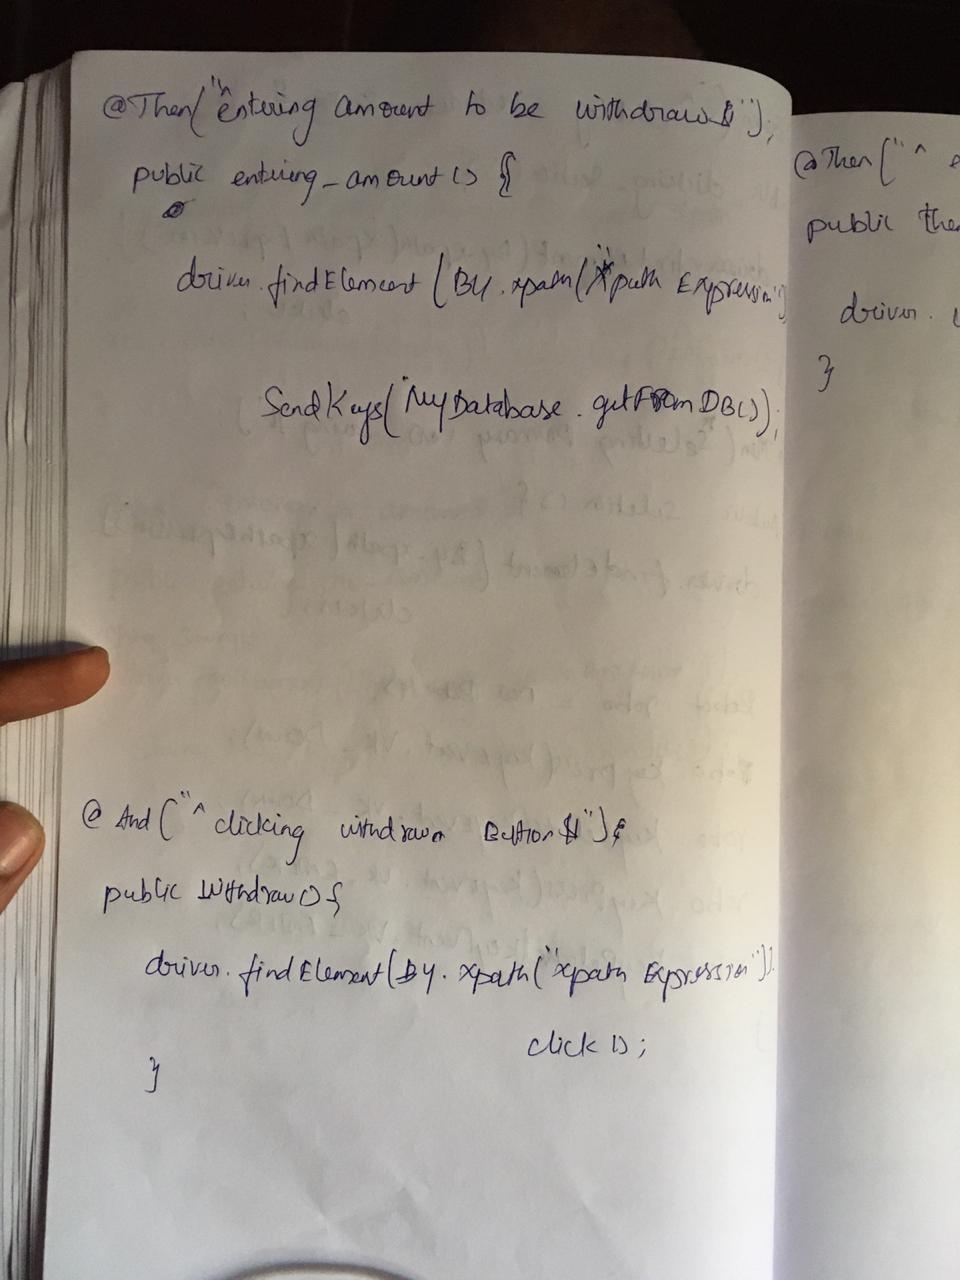 @Then("^entering amount to be withdraw$");
public entering_amount() {
driver.findElement(By.xpath("xpath Expression"
SendKeys(MyDatabase.getFromDB());
@And("^clicking withdraw Button$"){
public Withdraw(){
driver.findElement(By.xpath("xpath Expression")).
click();
}
@Then("^
public the
driver.
}